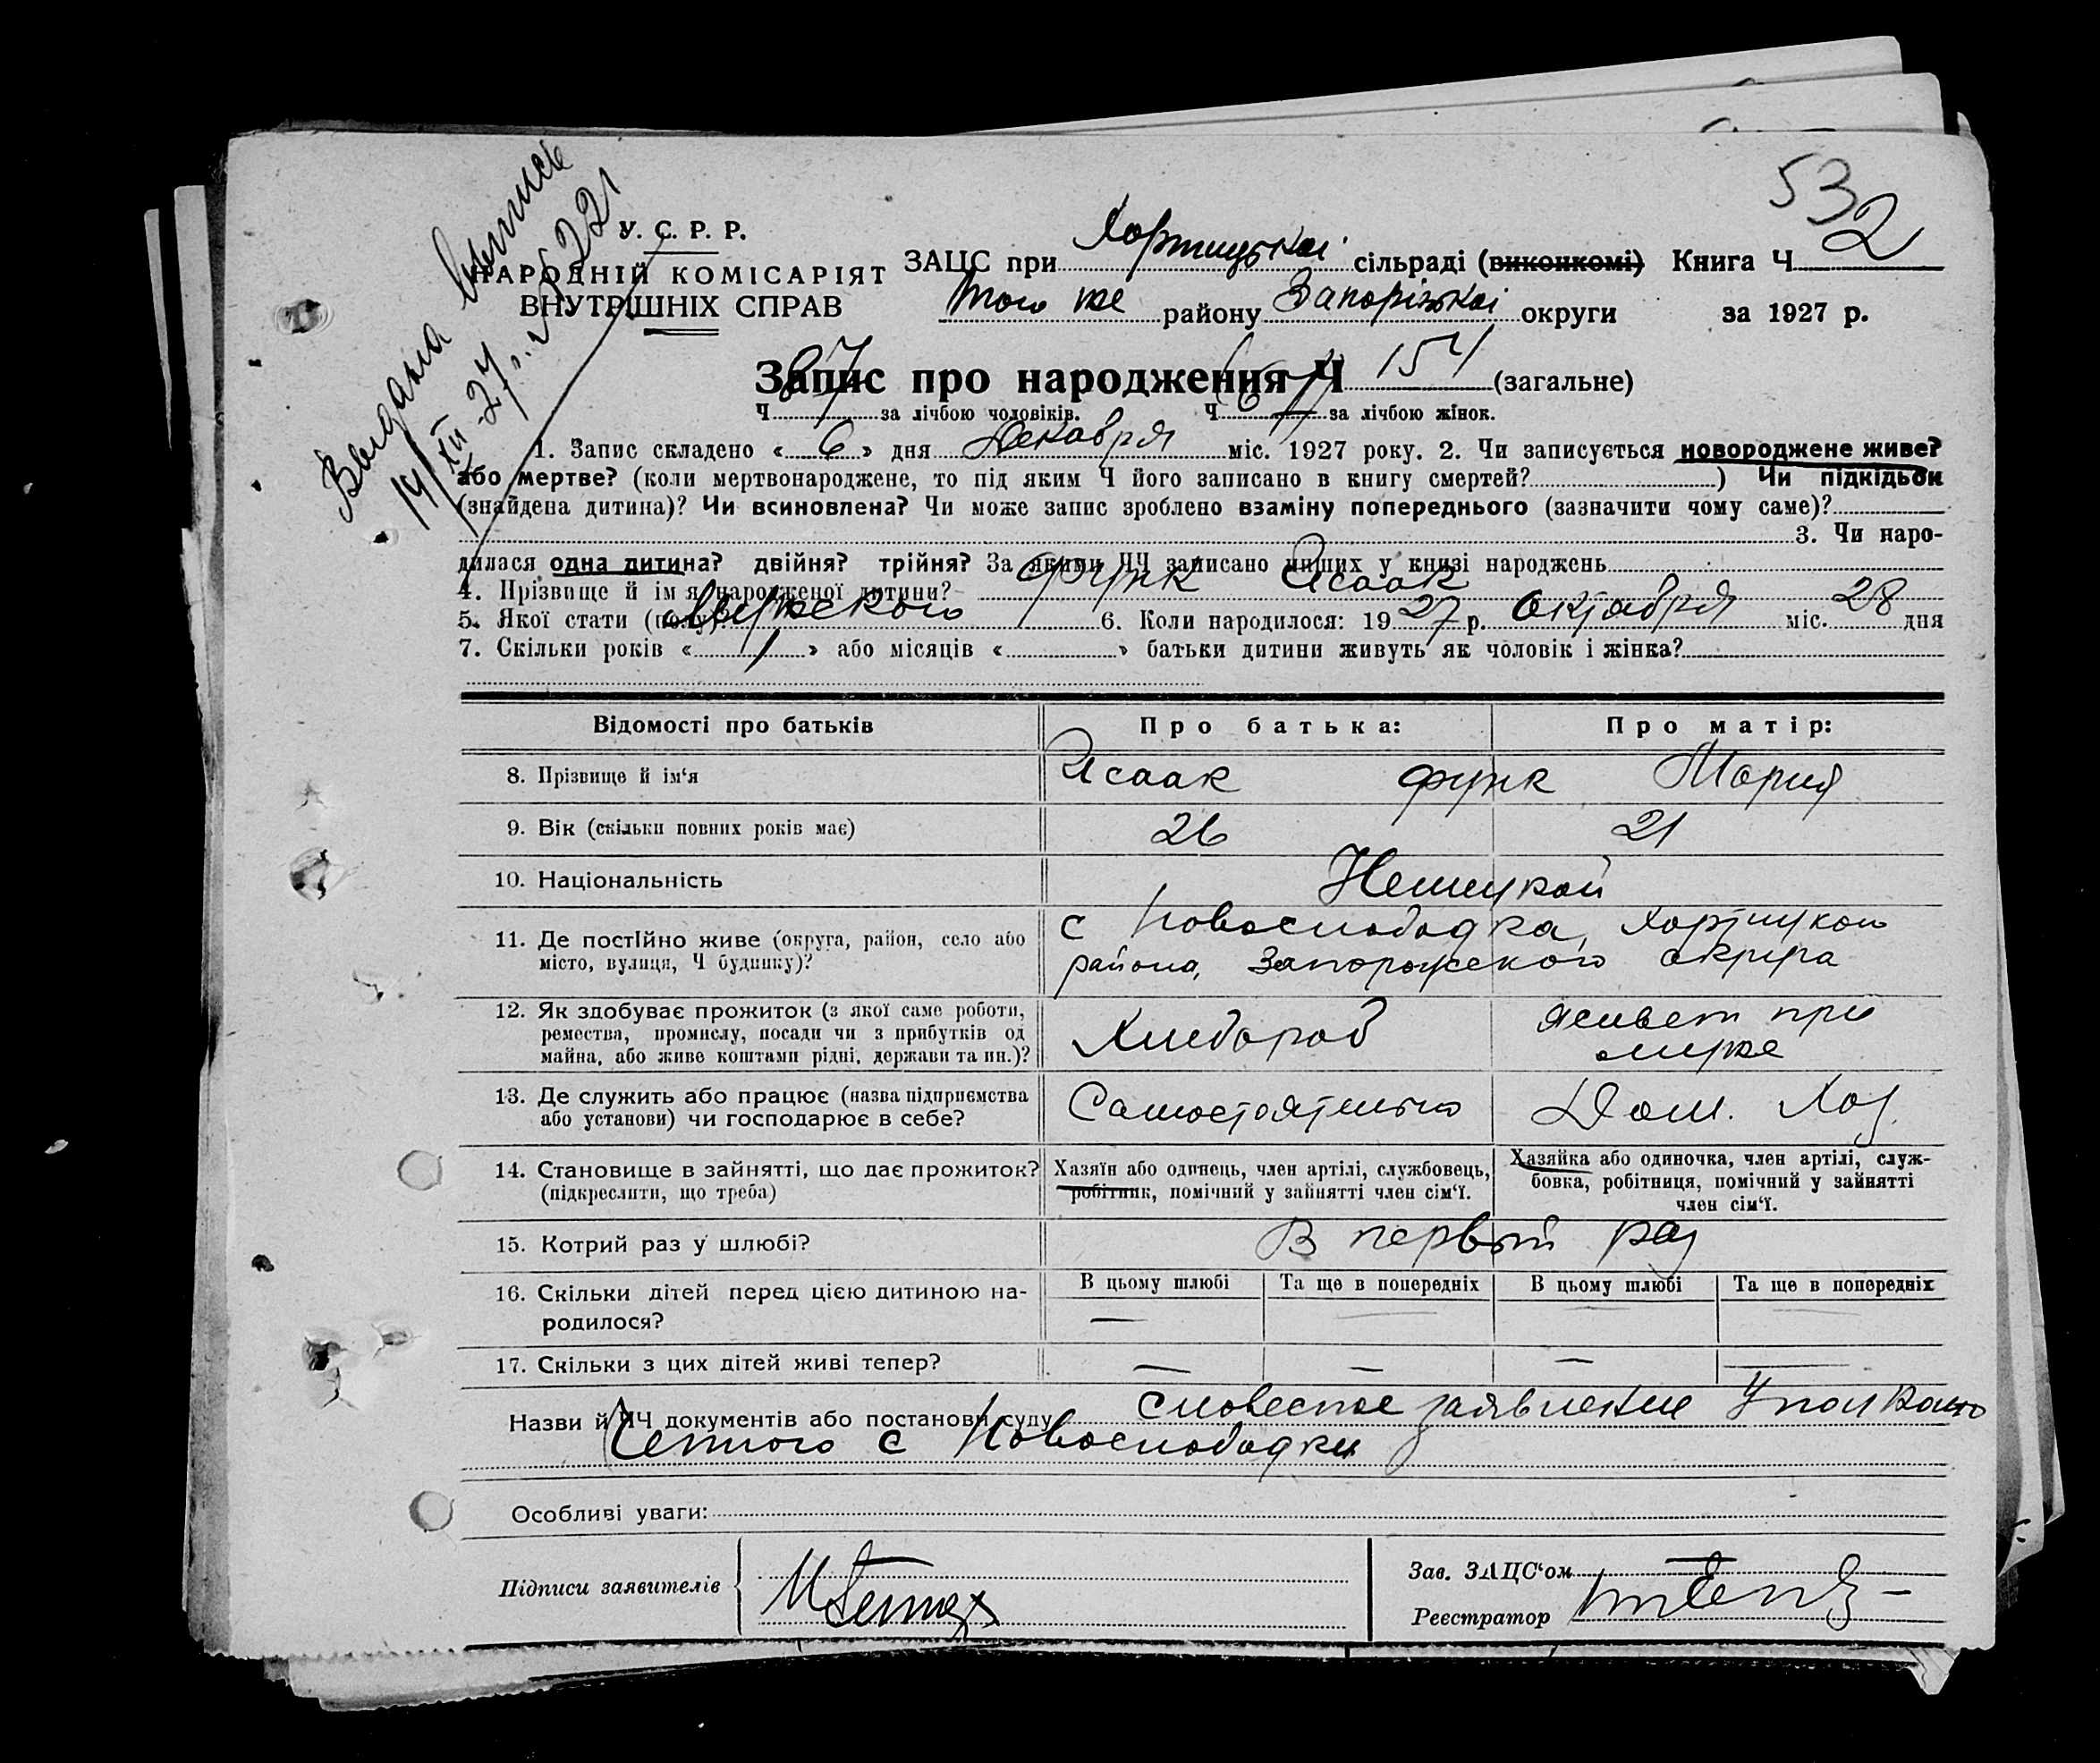 532
Выдана выпись
19/XII-27 р. № 221
У. С. Р. Р.
НАРОДНІЙ КОМІСАРІЯТ
ВНУТРІШНІХ СПРАВ
ЗАЦС при Хортицькоі сільраді (виконкомі) Книга Ч 2
того же району Запоріжкоі округи за 1927 р.
Запис про народження Ч 154 (загальне)
Ч 87 за лічбою чоловіків. Ч 67 за лічбою жінок.
1. Запис складено « 6 » дня Декабря міс. 1927 року. 2. Чи записується новороджене живе?
або мертве? (коли мертвонароджене, то під яким Ч його записано в книгу смертей? ) Чи підкідьок
(знайдена дитина)? Чи всиновлена? Чи може запис зроблено взаміну попереднього (зазначити чому саме)?
3. Чи наро-
дилася одна дитина? двійня? трійня? За якими ЧЧ записано инших у книзі народжень
4. Прізвище й ім'я народженої дитини? Функ Исаак
5. Якої стати (полу)? Мужского 6. Коли народилося: 1927 р. Октября міс. 28 дня
7. Скільки років « 1 » або місяців « » батьки дитини живуть як чоловік і жінка?
Відомості про батьків Про батька: Про матір:
8. Прізвище й ім'я Исаак Функ Мария
9. Вік (скільки повних років має) 26 21
10. Національність Немецкой
11. Де постійно живе (округа, район, село або місто, вулиця, Ч будинку)? с Новослободка, Хортицкого
района, Запорожского округа
12. Як здобуває прожиток (з якої саме роботи, ремества, промислу, посади чи з прибутків од майна, або живе коштами рідні, держави та ин.)? Хлебороб живет при муже
13. Де служить або працює (назва підприємства або установи) чи господарює в себе? Самостоятельно Дом. Хоз.
14. Становище в зайнятті, що дає прожиток? (підкреслити, що треба) Хазяїн або одинець, член артілі, службовець, робітник, помічний у зайнятті член сім'ї. Хазяйка або одиночка, член артілі, служ-бовка, робітниця, помічний у зайнятті член сім'ї.
15. Котрий раз у шлюбі? В первый раз
16. Скільки дітей перед цією дитиною на-родилося? В цьому шлюбі Та ще в попередніх В цьому шлюбі Та ще в попередніх
— — — —
17. Скільки з цих дітей живі тепер? — — — —
Назви й ЧЧ документів або постанови суду Словесное заявление Уполномо
ченного с Новослободки
Особливі уваги:
Підписи заявителів
Зав. ЗАЦС'ом
Реєстратор